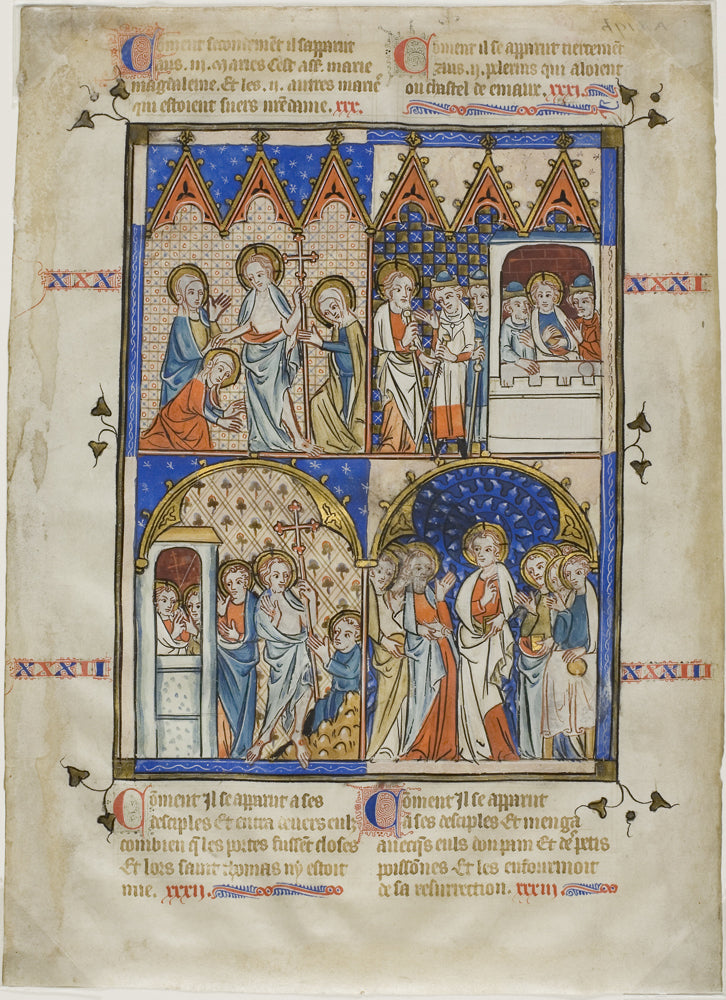 Coment secondemēt il sapparut
a ps. iii. Maries Cest ass. marie
magdaleine. Et les .ii. autres mariē
qui estoient suers nr̄e dame. xxx.
Coment il se apparut tiercemēt
.ii. pelerins qui aloient
ou chastel de emaux. xxxi.
XXX
XXXI
XXXII
XXXIII
Cōment Il se apparut a ses
desciples Et entra deuers euls
combien q̄ les portes fussent closes
Et lors saint thomas ny estoit
mie. xxxii.
Cōment Il se apparut
a ses desciples Et menga
auecq̄s euls dou pain Et de petis
poissōnes Et les enfourmoit
de sa resurrection. xxxiii.